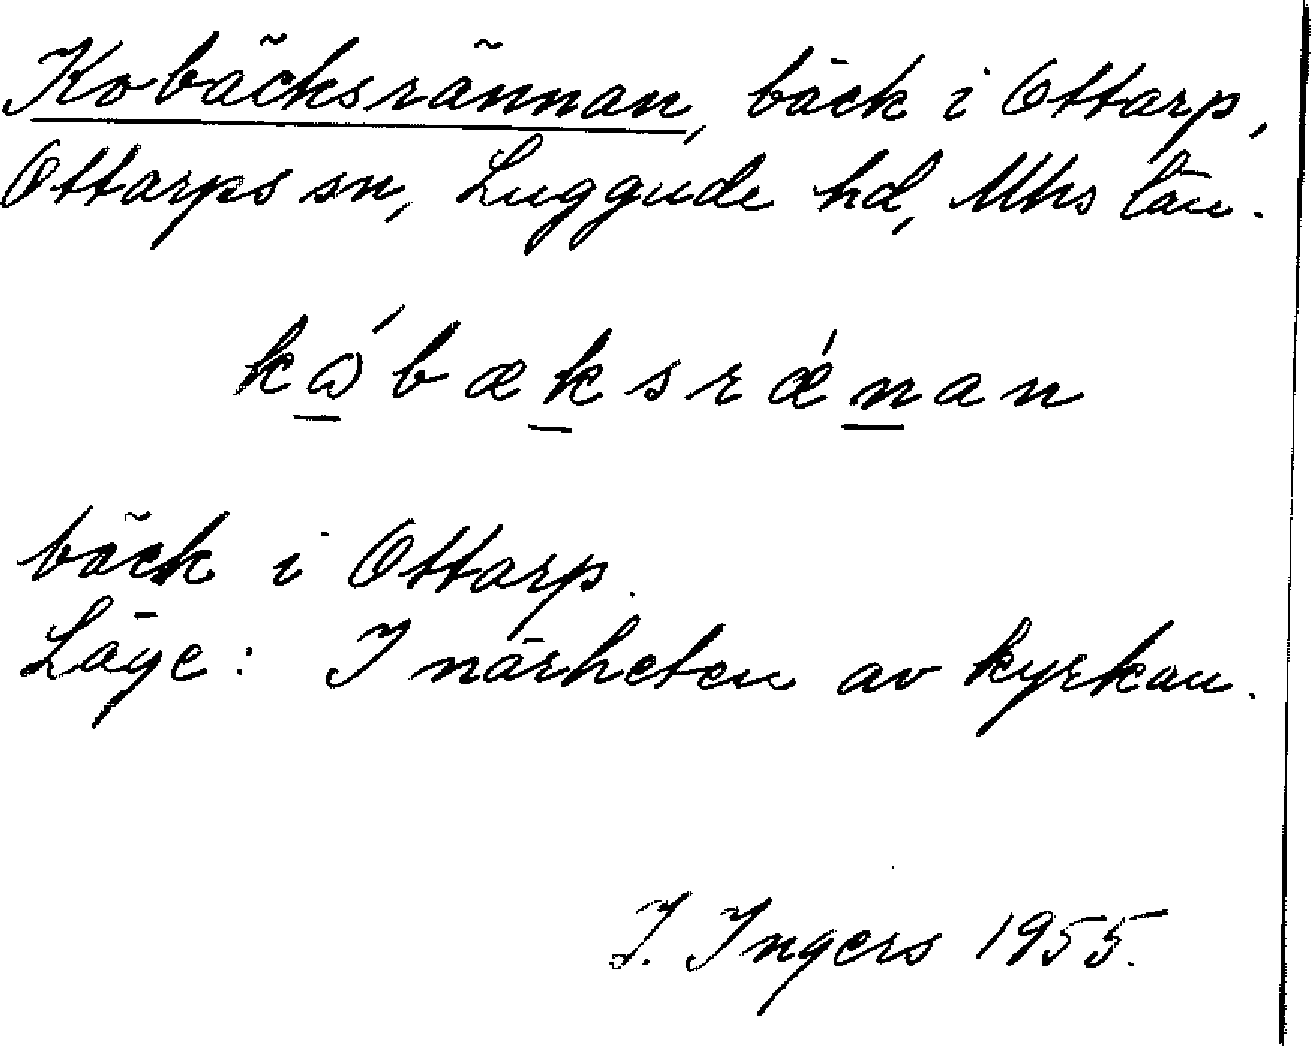 Kobäcksrännan, bäck i Ottarp,
Ottarps sn, Luggude hd, Mhs län.
bäck i Ottarp.
Läge: I närheten av kyrkan.
I. Ingers 1955.